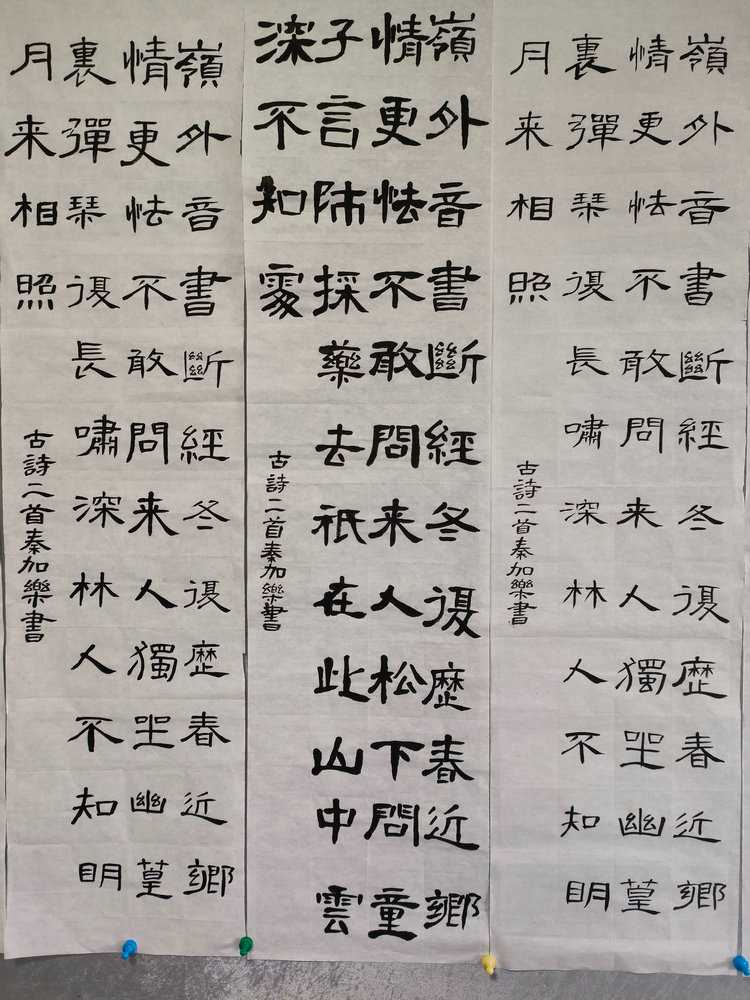 嶺外音書斷經冬復歷春近鄉
情更怯不敢問来人獨坐幽篁
裏彈琴復長嘯深林人不知明
月来相照
古詩二首秦加樂書
嶺外音書斷經冬復歷春近鄉
情更怯不敢問来人松下問童
子言師採藥去祇在此山中雲
深不知處
古詩二首秦加樂書
嶺外音書斷經冬復歷春近鄉
情更怯不敢問来人獨坐幽篁
裏彈琴復長嘯深林人不知明
月来相照
古詩二首秦加樂書